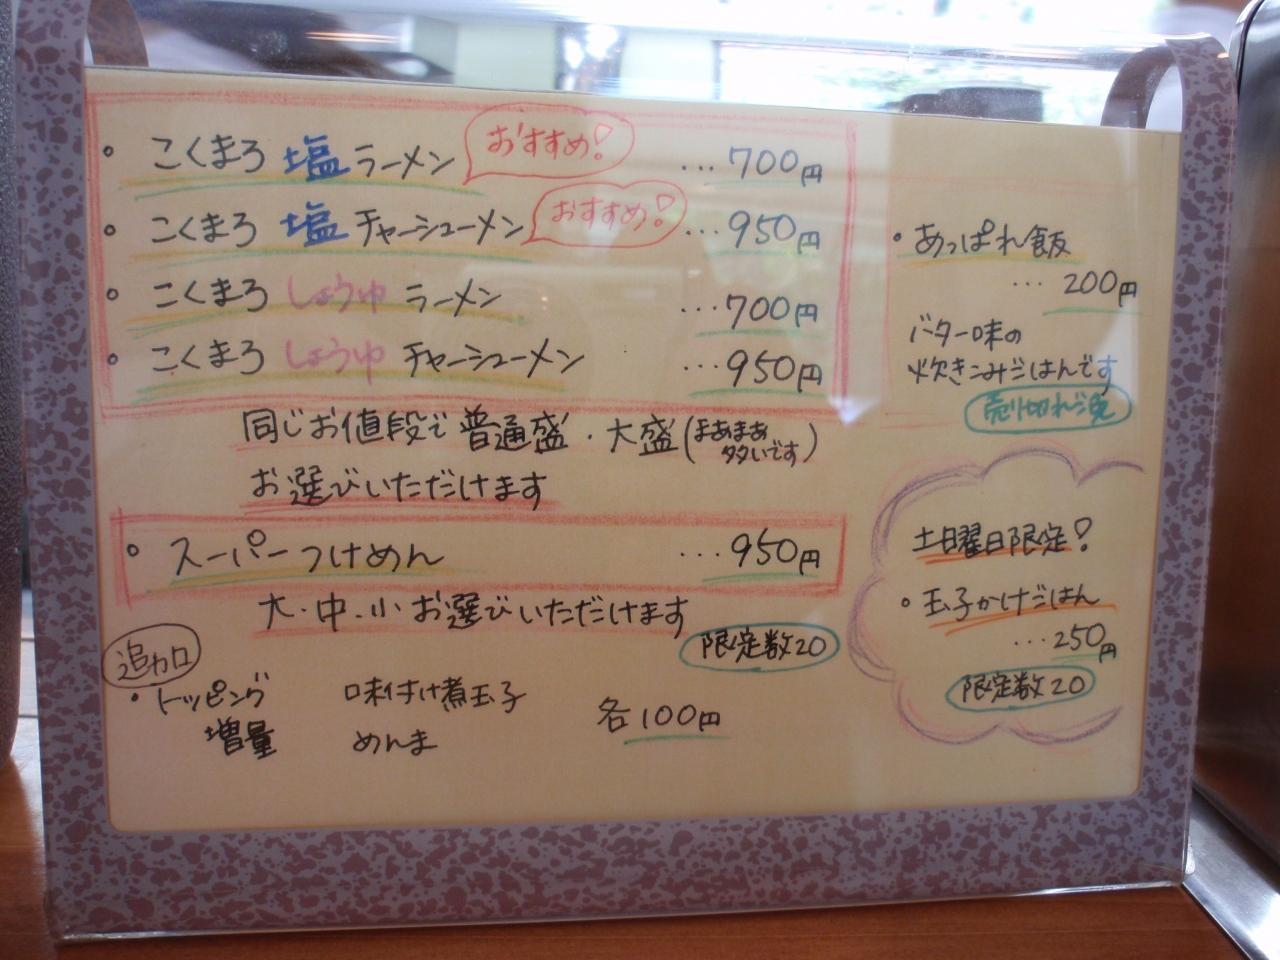 ・こくまろ 塩 ラーメン おすすめ! …700円
・こくまろ 塩 チャーシューメン おすすめ! …950円
・こくまろ しょうゆ ラーメン …700円
・こくまろ しょうゆ チャーシューメン …950円
同じお値段で 普通盛・大盛(まあまあ多いです)
お選びいただけます
・スーパーつけめん …950円
大・中・小 お選びいただけます
限定数20
追加
・トッピング 味付け煮玉子 各100円
増量 めんま
・あっぱれ飯
…200円
バター味の
炊きこみごはんです
売り切れご免
土曜日限定!
・玉子かけごはん
…250円
限定数20